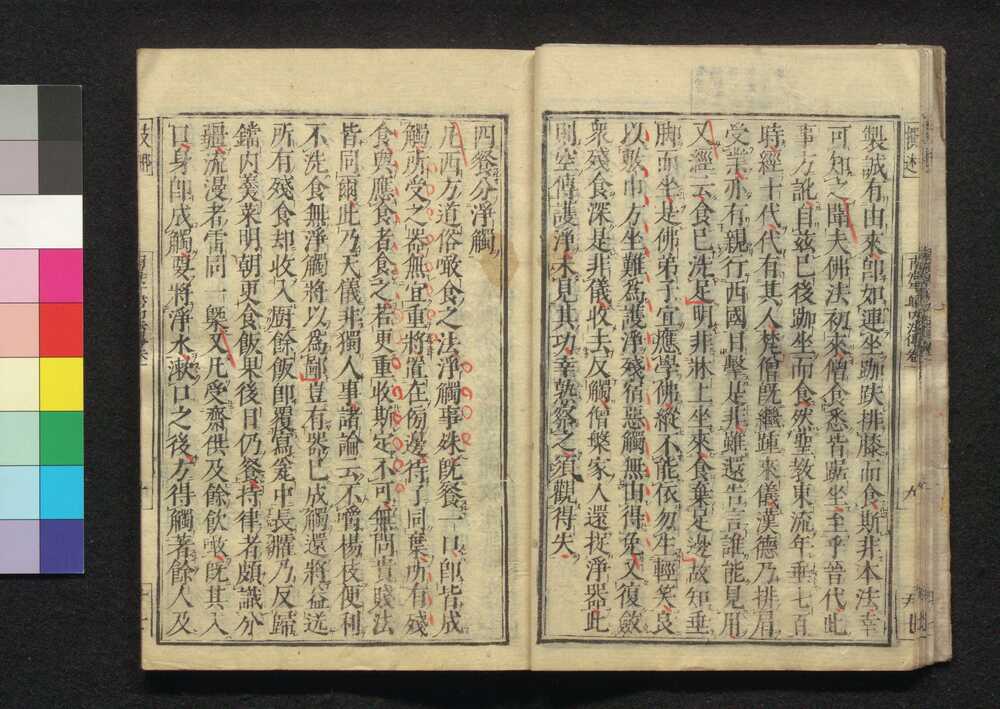 製誠有由來即如連坐跏趺排膝而食斯非本法幸
可知之聞夫佛法初來僧食悉皆踞坐至乎晉代此
事方訛自茲已後跏坐而食然聖教東流年垂七百
時經十代代有其人梵僧既繼踵來儀漢德乃排肩
受業亦有親行西國目擊是非雖還告言誰能見用
又經云食已洗足明非牀上坐來食棄足邊故知垂
脚而坐是佛弟子宜應學佛縱不能依勿生輕笑良
以敷巾方坐難為護淨殘宿惡觸無由得免又復斂
衆殘食深是非儀收去反觸僧槃家人還捉淨器此
則空傳護淨未見其功幸熟察之須觀得失
四餐分淨觸
凡西方道俗噉食之法淨觸事殊既餐一口即皆成
觸所受之器無宜重將置在傍邊待了同棄所有殘
食與應食者食之若更重收斯定不可無問貴賤法
皆同爾此乃天儀非獨人事諸論云不嚼楊枝便利
不洗食無淨觸將以為鄙豈有器已成觸還將益送
所有殘食却收入厨餘飯即覆寫瓮中長臛乃反歸
鐺内羹菜明朝更食飯果後日仍餐持律者頗識分
疆流漫者雷同一槩又凡受齋供及餘飲噉既其入
口身即成觸要將淨水漱口之後方得觸著餘人及